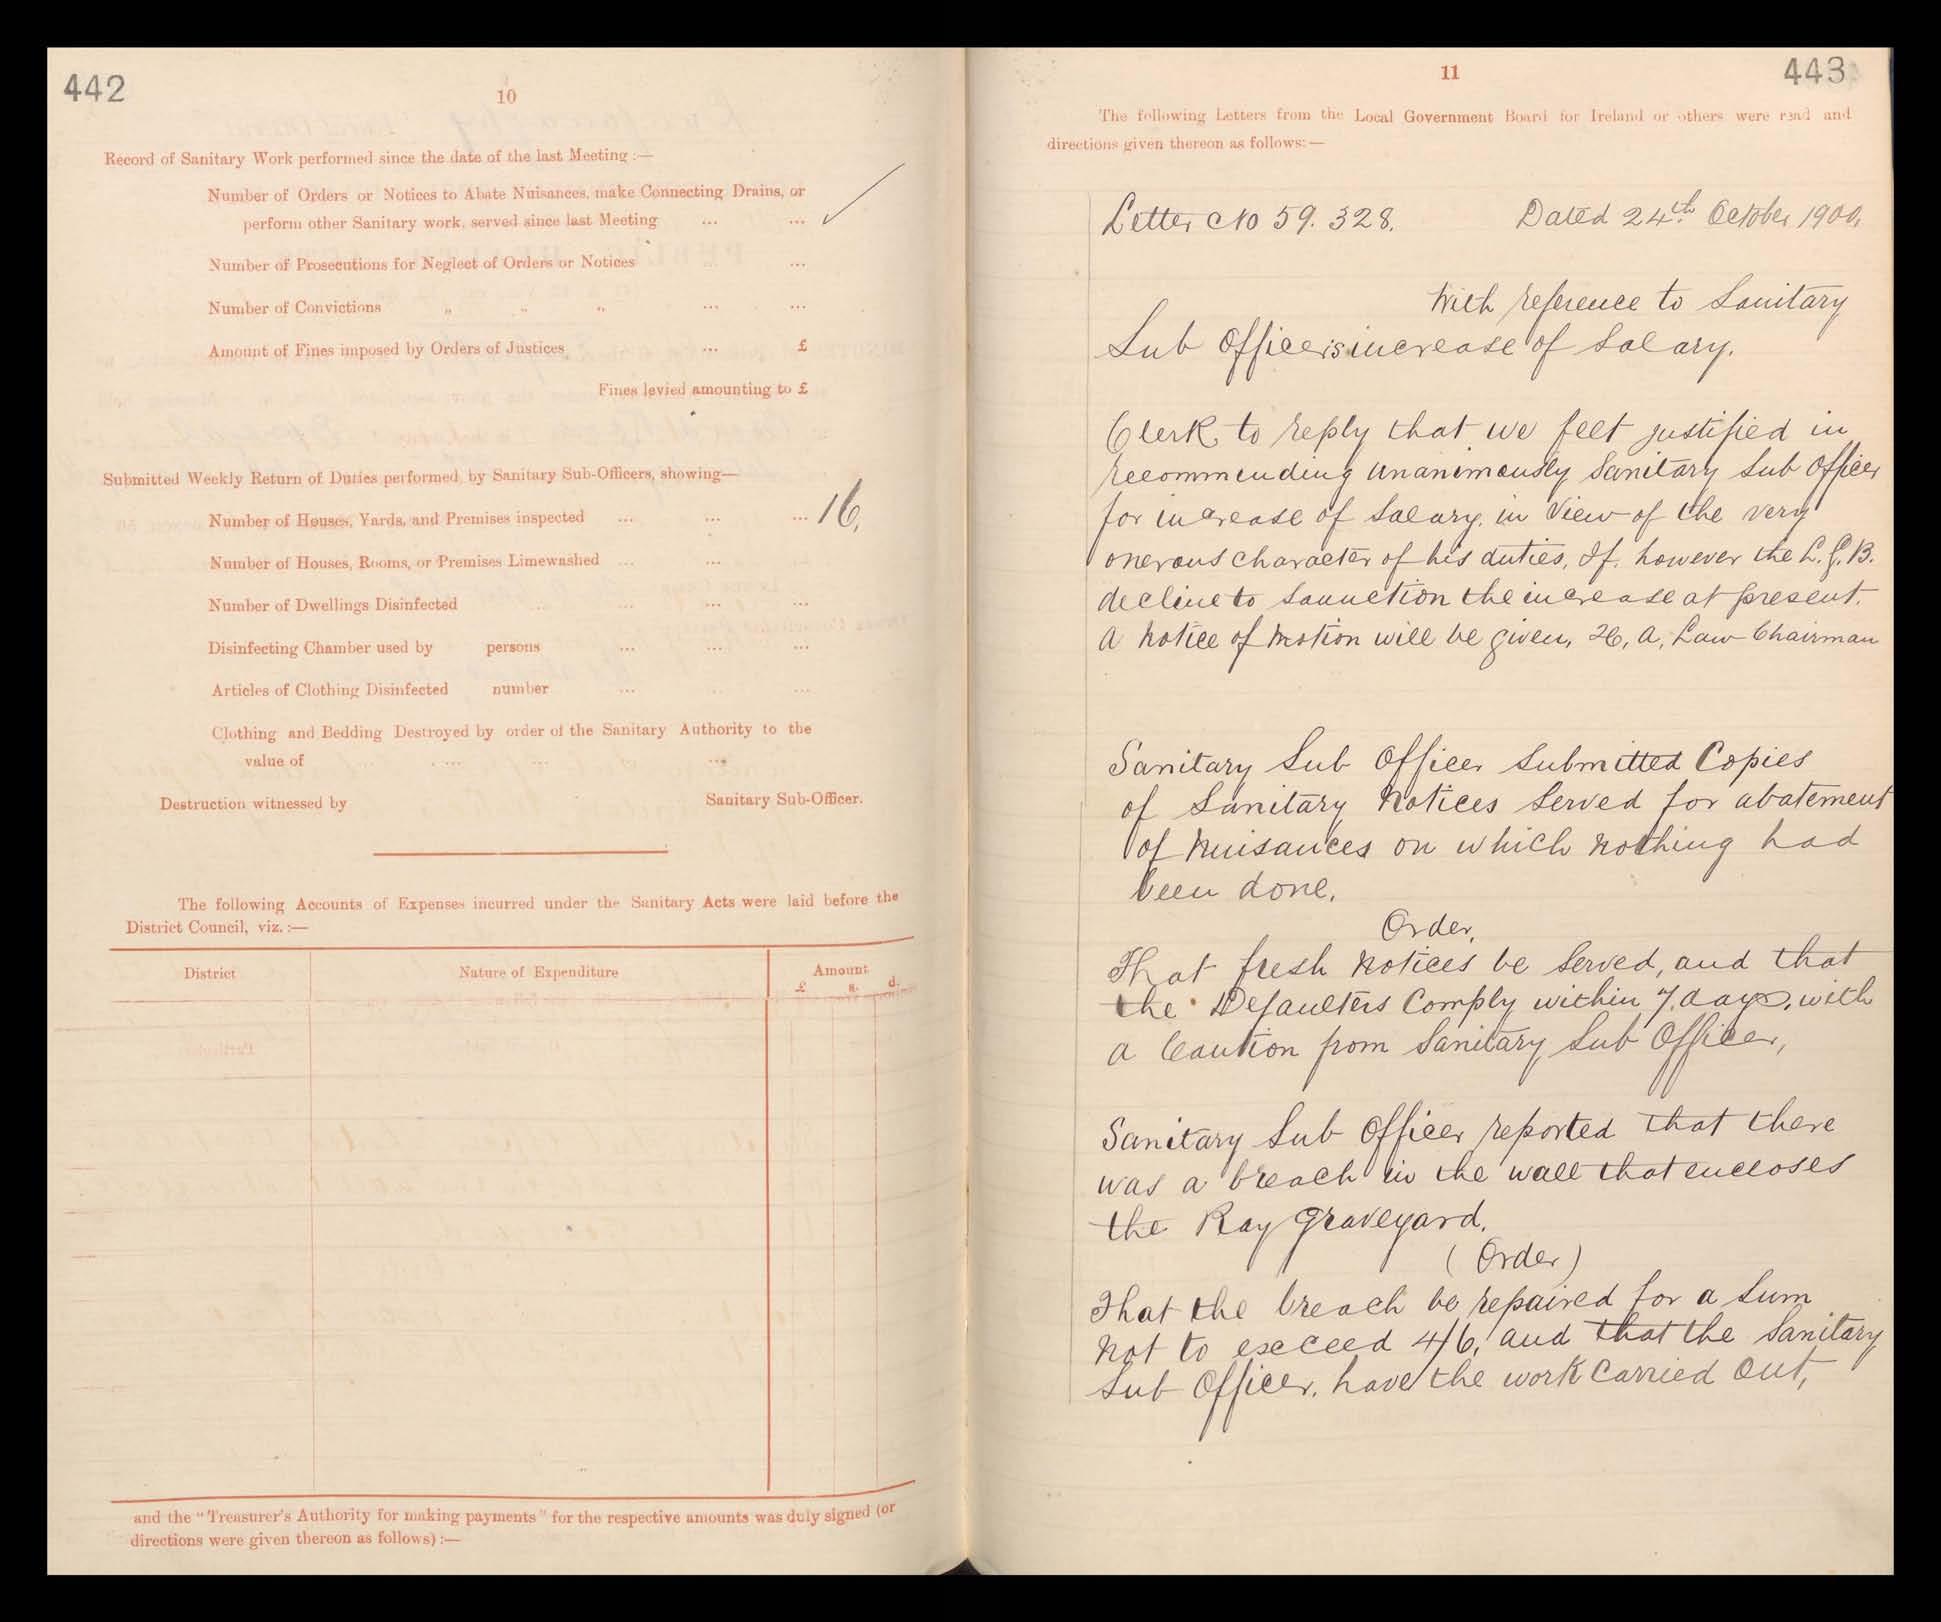 442
10
Record of Sanitary Work performed since the date of the last Meeting :—
Number of Orders or Notices to Abate Nuisances, make Connecting Drains, or
perform other Sanitary work, served since last Meeting ... ...
Number of Prosecutions for Neglect of Orders or Notices ...
Number of Convictions „ „ „ ... ...
Amount of Fines imposed by Orders of Justices ... £
Fines levied amounting to £
Submitted Weekly Return of Duties performed by Sanitary Sub-Officers, showing—
Number of Houses, Yards, and Premises inspected ... ... ... 16,
Number of Houses, Rooms, or Premises Limewashed ... ...
Number of Dwellings Disinfected ... ... ...
Disinfecting Chamber used by persons ... ... ...
Articles of Clothing Disinfected number ... ... ...
Clothing and Bedding Destroyed by order of the Sanitary Authority to the
value of ... ... ... ...
Destruction witnessed by Sanitary Sub-Officer.
The following Accounts of Expenses incurred under the Sanitary Acts were laid before the
District Council, viz. :—
District Nature of Expenditure Amount
£ s. d.
and the “Treasurer's Authority for making payments” for the respective amounts was duly signed (or
directions were given thereon as follows) :—
11
443
The following Letters from the Local Government Board for Ireland or others were read and
directions given thereon as follows:—
Letter No 59.328. Dated 24th October 1900,
With reference to Sanitary
Sub Officers increase of Salary.
Clerk to reply that we felt justified in
recommending unanimously Sanitary Sub Officer
for increase of Salary, in View of the very
onerous character of his duties, If however the L.G.B.
decline to sannction the increase at present.
A Notice of Motion will be given, H, A, Law Chairman
Sanitary Sub Officer Submitted Copies
of Sanitary Notices Served for abatement
of Nuisances on which nothing had
been done.
Order,
That fresh Notices be Served, and that
the Defaulters Comply within 7 days, with
a Caution from Sanitary Sub Officer,
Sanitary Sub Officer reported that there
was a breach in the wall that encloses
the Ray Graveyard.
(Order)
That the breach be repaired for a Sum
not to exceed 4/6, and that the Sanitary
Sub Officer, have the work Carried Out,